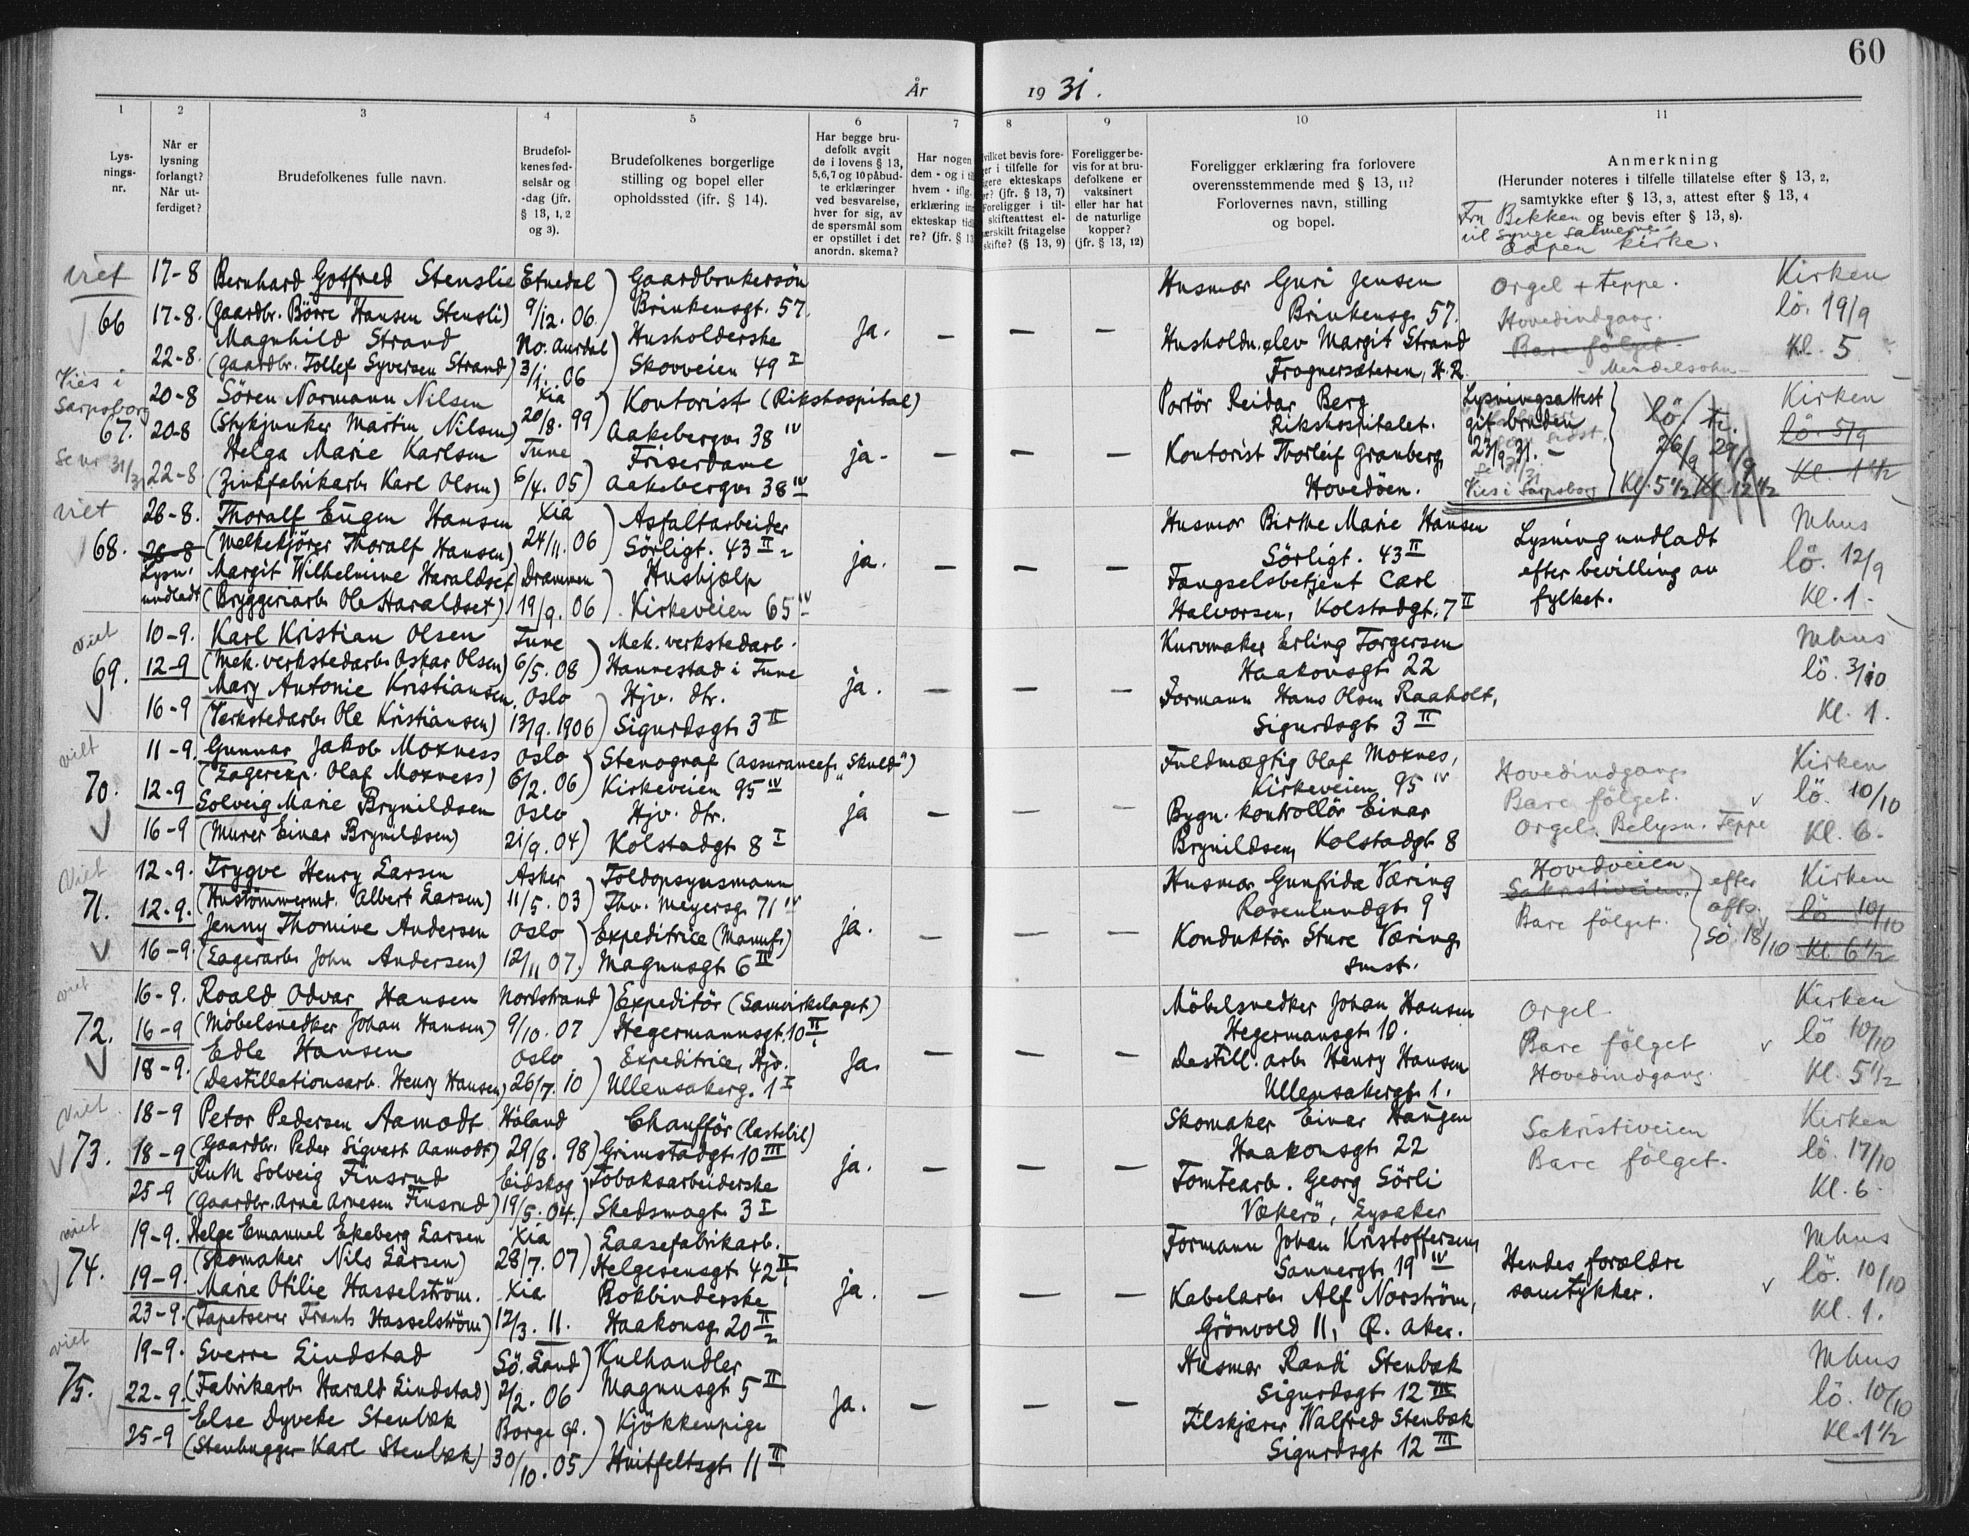 60
År 1931.
1 2 3 4 5 6 7 8 9 10 11
Lysningsnr.
Når er lysning forlangt? Når utferdiget?
Brudefolkenes fulle navn.
Brudefolkenes fødselsår og -dag (jfr. § 13, 1, 2 og 3).
Brudefolkenes borgerlige stilling og bopel eller opholdssted (ifr. § 14).
Har begge brudefolk avgit de i lovens § 13, 5, 6, 7 og 10 påbudte erklæringer ved besvarelse, hver for sig, av de spørsmål som er opstillet i det anordn. skema?
Foreligger bevis for at brudefolkene er vaksinert eller har hat de naturlige kopper? (jfr. § 13, 12)
Foreligger erklæring fra forlovere overensstemmende med § 13, 11? Forlovernes navn, stilling og bopel.
Anmerkning
(Herunder noteres i tilfelle tillatelse efter § 13, 2, samtykke efter § 13, 3, attest efter § 13, 4 og bevis efter § 13, 8).
Fru Bekken vil synge salmerne
aapen kirke.
viet
66
17-8
17-8.
22-8.
Bernhard Gotfred Stenslie
(Gaardbr. Börre Hansen Stensli)
Magnhild Strand
(Gaardbr. Tollef Syversen Strand)
Etnedal
9/12. 06.
No. Aurdal
3/1. 06
Gaardbrukersön
Brinkensgt. 57.
Husholderske
Skovveien 49 I
Ja. – – –
Husmor Guri Jensen
Brinkensg. 57.
Husholdn.elev Margit Strand
Frognersæteren, H.R.
Orgel + teppe.
Hovedindgang.
Bare følget
Mendelsohn
Kirken
lö. 19/9
Kl. 5
Vies i Sarpsborg
67.
Se nr 31/31
20-8
20-8
22-8
Sören Normann Nilsen
(Stykjunker Martin Nilsen)
Helga Marie Karlsen
(Zinkfabrikarb. Karl Olsen)
Xia
20/8. 99
Tune
6/4. 05)
Kontorist (Rikshospital)
Aakebergv. 38 IV
Friserdame
Aakebergv. 38 IV
ja – – –
Portör Reidar Berg
Rikshospitalet.
Kontorist Thorleif Granberg
Hovedöen.
Lysningsattest
git bruden
23/9 31. –
Vies i Sarpsborg
lö. 26/9 Kl. 5 1/2
ti. 29/9 Kl 12 1/2
Kirken
lö. 5/9
Kl. 1 1/2
viet
68.
26-8.
26-8
Lysn. undladt
Thoralf Eugen Hansen
(Melkekjörer Thoralf Hansen)
Margit Wilhelmine Haraldset
(Bryggeriarb. Ole Haraldset)
Xia
24/11. 06
Drammen
19/9. 06
Asfaltarbeider
Sörligt. 43 II
Hushjælp
Kirkeveien 65 IV
ja. – – –
Husmor Birthe Marie Hansen
Sörligt. 43 II
Fangselsbetjent Carl
Halvorsen, Kolstadgt. 7 II
Lysning undladt
efter bevilling av
fylket.
Mhus
lö. 12/9
Kl. 1
viet
69.
10-9.
12-9
16-9
Karl Kristian Olsen
(Mek. verkstedarb. Oskar Olsen)
Mary Antonie Kristiansen
(Verkstedarb. Ole Kristiansen)
Tune
6/5. 08
Oslo
13/9. 1906
Mek. verkstedarb.
Hannestad i Tune
Hjv. dtr.
Sigurdsgt. 3 II
ja. – – –
Kurvmaker Erling Torgersen
Haakonsgt. 22
Formann Hans Olsen Raaholt,
Sigurdsgt 3 II
Mhus
lö. 3/10
Kl. 1.
viet
70.
11-9.
12-9
16-9
Gunnar Jakob Moxness
(Lagerexp. Olaf Moxness)
Solveig Marie Brynildsen
(Murer Einar Brynildsen)
Oslo
6/2. 06)
Oslo
21/9. 04)
Stenograf (assurancef. "Skuld")
Kirkeveien 95 IV
Hjv. dtr.
Kolstadgt. 8 I
ja – – –
Fuldmægtig Olaf Moxnes,
Kirkeveien 95 IV
Bygn. kontrollör Einar
Brynildsen, Kolstadgt. 8
Hovedindgang
Bare følget.
Orgel. Belysn. Teppe
Kirken
lö. 10/10
Kl. 6
Viet
71.
12-9.
12-9.
16-9.
Trygve Henry Larsen
(Hustömmermd. Albert Larsen)
Jenny Thomine Andersen
(Lagerarb. John Andersen)
Asker
11/5. 03
Oslo
12/11 07.
Toldopsynsmann
Thv. Meyersg. 71 IV
Expeditrice (Manuf.)
Magnusgt 6 III
ja. – – –
Husmor Gunfrida Væring
Rosenlundgt. 9
Konduktör Sture Væring
smst.
Hovedveien
Sakristiveien.
Bare følget.
efter
afts.
Sö 18/10
Kirken
lö 10/10
Kl. 6 1/2
viet
72.
16-9.
16-9
18-9.
Roald Odvar Hansen
(Möbelsnedker Johan Hansen)
Edle Hansen
(Destillationsarb. Henry Hansen)
Nordstrand
9/10. 07
Oslo
26/7. 10
Expeditör (Samvirkelaget)
Hegermannsgt. 10 II
Expeditrice, Hjv.
Ullensakerg. 1 I
Ja. – – –
Möbelsnedker Johan Hansen
Hegermansgt 10.
Destill. arb. Henry Hansen
Ullensakergt. 1.
Orgel
Bare følget
Hovedindgang.
Kirken
lö 10/10
Kl. 5 1/2
Viet
73.
18-9
18-9
25-9
Peter Pedersen Aamodt
(Gaardbr. Peder Sigvart Aamodt)
Ruth Solveig Finsrud
(Gaardbr. Arne Arnesen Finsrud)
Höland
29/8. 98)
Eidskog
19/5. 04.)
Chaufför (Lastebil)
Grimstadgt. 10 III
Tobaksarbeiderske
Skedsmogt. 3 I
ja. – – –
Skomaker Einar Haugen
Haakonsgt. 22
Tomtearb. Georg Sörli
Vækerö, Lysaker
Sakristiveien
Bare følget.
Kirken
lö. 17/10
Kl. 6
viet
74.
19-9.
19-9.
23-9.
Helge Emanuel Ekeberg Larsen
(Skomaker Nils Larsen)
Marie Otilie Hasselström.
(Tapetserer Frants Hasselström)
Xia
28/7. 07
Xia
12/3. 11.
Laasefabrikarb.
Helgesensgt. 42 II
Bokbinderske
Haakonsg. 20 II
ja. – – –
Formann Johan Kristoffersen,
Sannergt. 19 IV
Kabelarb. Alf Norström,
Grönvold 11, Ø. Aker.
Hendes forældre
samtykker.
Mhus
lö. 10/10
Kl. 1.
viet
75.
19-9.
22-9.
25-9
Sverre Lindstad
(Fabrikarb. Harald Lindstad)
Else Dyveke Stenbæk
(Stenhugger Karl Stenbæk)
Sö. Land
2/2. 06
Borge Ø.
30/10. 05.
Kulhandler
Magnusgt 5 II
Kjökkenpige
Huitfeltsgt. 11 II
Ja. – – –
Husmor Randi Stenbæk
Sigurdsgt 12 III
Tilskjærer Walfred Stenbæk
Sigurdsgt 12 III
Mhus
lö. 10/10
Kl. 1 1/2